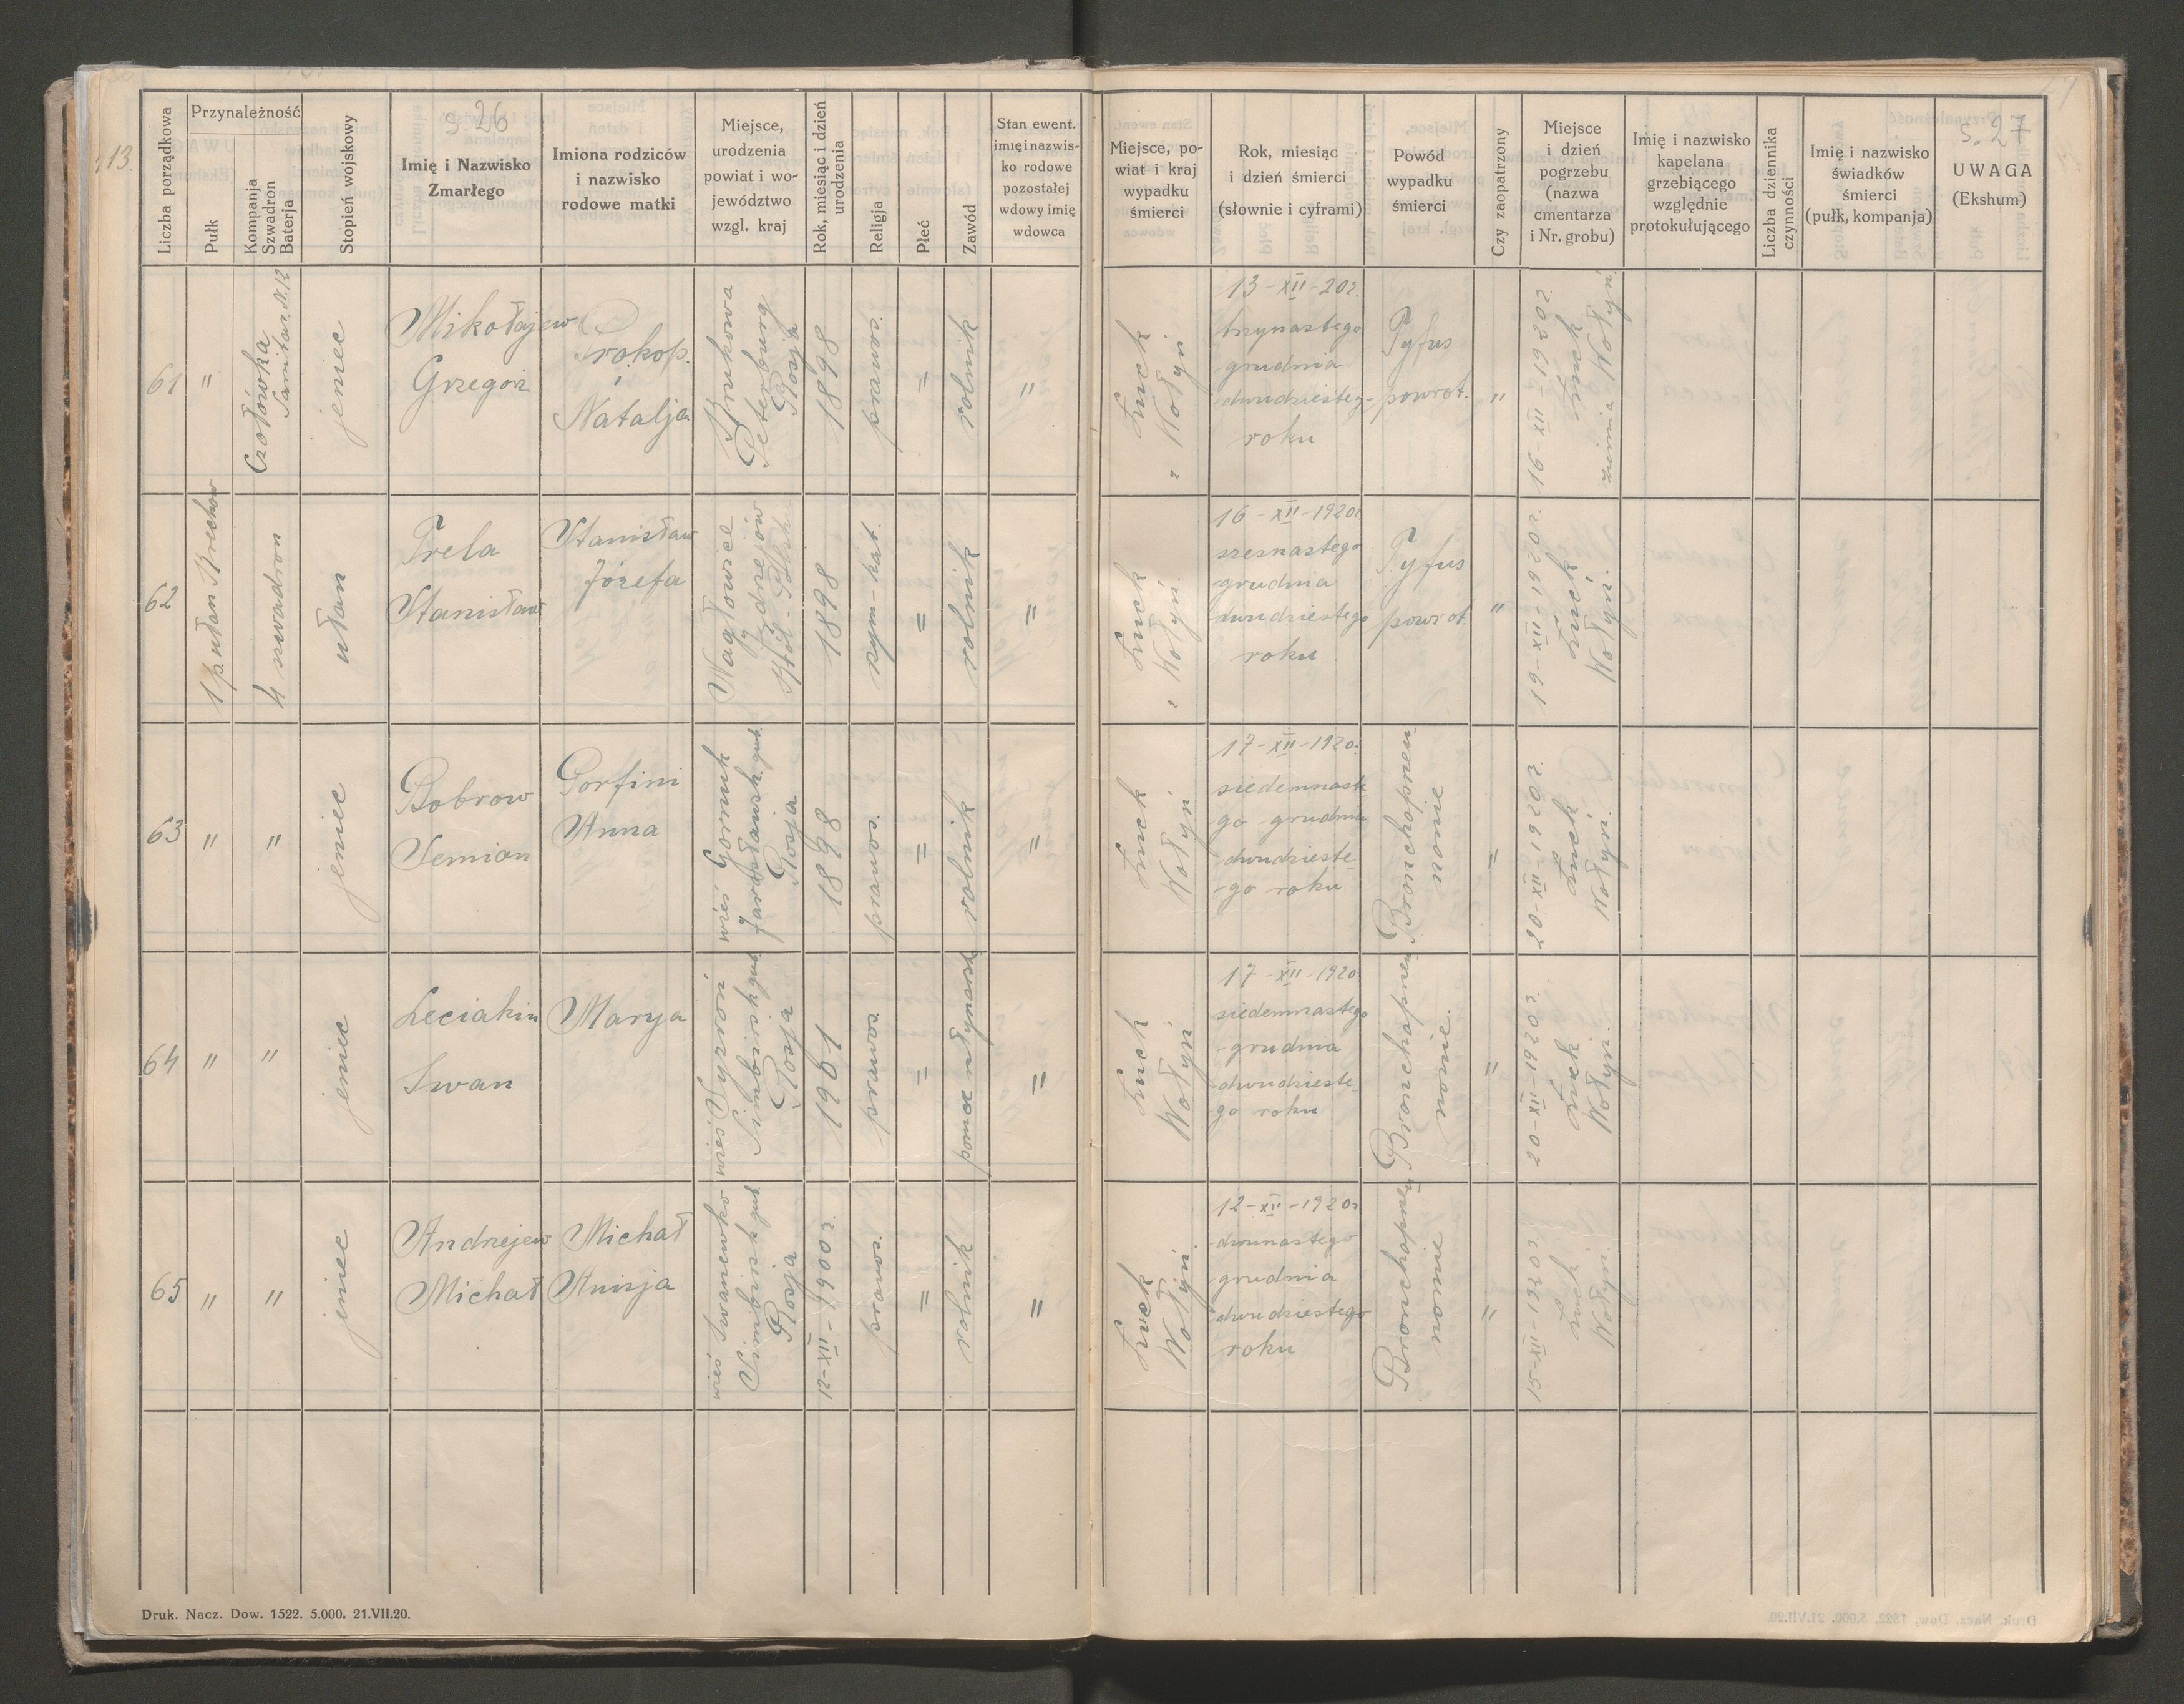 13.
S. 26
S. 27
Liczba porządkowa
Przynależność
Pułk
Kompanja
Szwadron
Baterja
Stopień wojskowy
Imię i Nazwisko
Zmarłego
Imiona rodziców
i nazwisko
rodowe matki
Miejsce,
urodzenia
powiat i wo-
jewództwo
wzgl. kraj
Rok, miesiąc i dzień
urodzenia
Religja
Płeć
Zawód
Stan ewent.
imię i nazwis-
ko rodowe
pozostałej
wdowy imię
wdowca
Miejsce, po-
wiat i kraj
wypadku
śmierci
Rok, miesiąc
i dzień śmierci
(słownie i cyframi)
Powód
wypadku
śmierci
Czy zaopatrzony
Miejsce
i dzień
pogrzebu
(nazwa
cmentarza
i Nr. grobu)
Imię i nazwisko
kapelana
grzebiącego
względnie
protokułującego
Liczba dziennika
czynności
Imię i nazwisko
świadków
śmierci
(pułk, kompanja)
UWAGA
(Ekshum)
61
"
Czołówka
Sanitar. N. 12
jeniec
Mikołajew
Grzegorz
Prokop.
i
Natalja
Peterburg
Rosja
1898
prawos.
=
rolnik
"
Łuck
Wołyń
13-XII-20r.
trzynastego
grudnia
dwudziesteg-
roku
Tyfus
powrot.
"
16-XII-1920r.
Łuck
ziemia Wołyń.
62
1 p. ułan Krechow
4 szwadron
ułan
Trela
Stanisław
Stanisław
Józefa
Nagłowice
Jędrzejów
1898
rzym-kat.
=
rolnik
=
Łuck
Wołyń.
16-XII-1920r
szesnastego
grudnia
dwudziestego
roku
Tyfus
powrot.
"
19-XII-1920r.
Łuck
Wołyń.
63
"
"
jeniec
Bobrow
Semion
Porfini
Anna
wieś Gornuk
gub.
Rosja
1898
prawos.
=
rolnik
=
Łuck
Wołyń
17-XII-1920r.
siedemnaste
go grudnia
dwudzieste
-go roku
Bronchopneu-
monie
=
20-XII-1920r.
Łuck
Wołyń.
64
"
"
jeniec
Leciakin
Iwan
Marya
wieś
Simbirsk gub.
Rosja
1901
prawos.
=
pomoc młynarsk
=
Łuck
Wołyń
17-XII-1920
siedemnastego
-grudnia
dwudzieste-
go roku
Bronchopneu
monie.
"
20-XII-1920r.
Łuck
Wołyń.
65
"
"
jeniec
Andrzejew
Michał
Michał
Anisja
wieś Iwancewko
Simbirsk gub.
Rosja
12-XII-1900r.
prawos.
=
rolnik
=
Łuck
Wołyń.
12-XII-1920r
dwunastego
grudnia
dwudziestego
roku
Bronchopneu
monie
"
15-XII-1920r.
Łuck
Wołyń.
Druk. Nacz. Dow. 1522. 5.000. 21.VII.20.